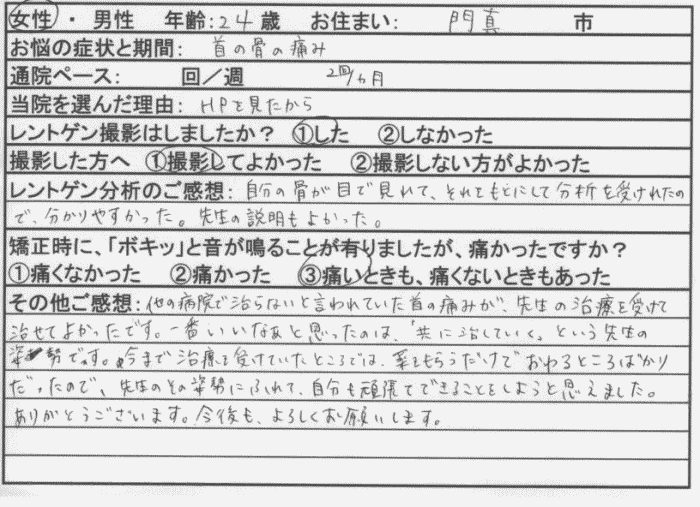 女性 ・ 男性 年齢:24歳 お住まい: 門真 市
お悩の症状と期間: 首の骨の痛み
通院ペース: 回/週 2回/ヵ月
当院を選んだ理由: HPを見たから
レントゲン撮影はしましたか? ①した ②しなかった
撮影した方へ ①撮影してよかった ②撮影しない方がよかった
レントゲン分析のご感想: 自分の骨が目で見れて、それをもとにして分析を受けれたの
で、分かりやすかった。先生の説明もよかった。
矯正時に、「ボキッ」と音が鳴ることが有りましたが、痛かったですか?
①痛くなかった ②痛かった ③痛いときも、痛くないときもあった
その他ご感想: 他の病院で治らないと言われていた首の痛みが、先生の治療を受けて
治せてよかったです。一番いいなあと思ったのは、「共に治していく」という先生の
姿勢です。今まで治療を受けていたところでは、薬をもらうだけでおわるところばかり
だったので、先生のその姿勢にふれて、自分も頑張てできることをしようと思えました。
ありがとうございます。今後も、よろしくお願いします。